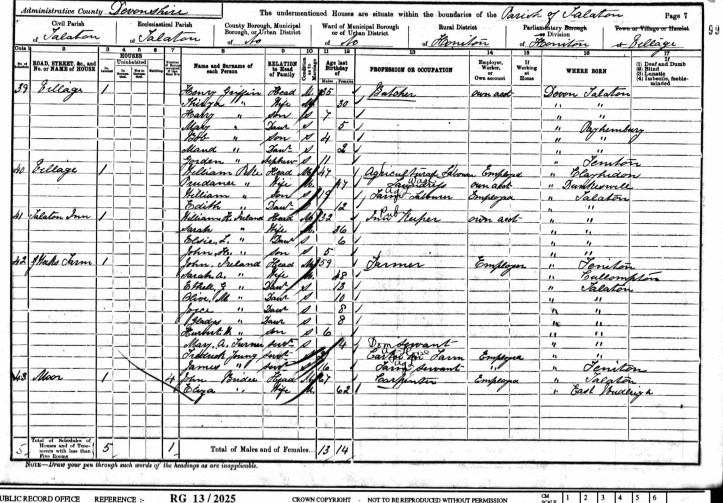 Administrative County Devonshire
The undermentioned Houses are situate within the boundaries of the Parish of Talaton
Page 7
99
Civil Parish
of Talaton
Ecclesiastical Parish
of Talaton
County Borough, Municipal Borough, or Urban District
of No
Ward of Municipal Borough or of Urban District
of No
Rural District
of Honiton
Parliamentary Borough or Division
of Honiton
Town or Village or Hamlet
of Village
Cols. 1 2 3 4 5 6 7 8 9 10 11 12 13 14 15 16 17
No. of
ROAD, STREET, &c., and No. or NAME of HOUSE
HOUSES
Uninhabited
Name and Surname of each Person
RELATION to Head of Family
Age last Birthday of
Males Females
PROFESSION OR OCCUPATION
Employer, Worker, or Own account
If Working at Home
WHERE BORN
(1) Deaf and Dumb
(2) Blind
(3) Lunatic
(4) Imbecile, feeble-minded
39 Village 1 Henry Griffin Head M 35 Butcher own acct Devon Talaton
" Wife M 30 " "
Harry " Son S 7 " "
Mary " Daur S 5 " Payhembury
" Son S 4 " "
Maud " Daur S 2 " "
Gorden " Nephew S 11 " Feniton
40 Village 1 William Head M 47 Agricultural Labourer Employed " Clayhidon
Prudence " Wife M 47 Laundress own acct " Dunkeswell
William " Son S 19 Labourer Employed " Talaton
Edith " Daur S 12 " "
41 Talaton Inn 1 William H. Ireland Head M 32 Inn Keeper Pub own acct " "
Sarah " Wife M 36 " "
Elsie L. " Daur S 6 " "
John " Son S 5 " "
42 Farm 1 John Ireland Head M 59 Farmer Employer " Feniton
Sarah A. " Wife M 48 " Cullompton
" Daur S 13 " Talaton
Olive M " Daur S 10 " "
Joyce " Daur S 8 " "
Gladys " Daur S 8 " "
" Son S 6 " "
Mary A. Turner Servt S 14 Dom Servant " "
Frederick Young Servt S Carter on Farm Employed " "
James " Servt S 16 Servant " " Feniton
43 Moor 1 4 John Head M 67 Carpenter Employed " Talaton
Eliza " Wife M 62 " East Budleigh
5 Total of Schedules of Houses and of Tenements with less than Five Rooms 5 1 Total of Males and of Females.. 13 14
NOTE—Draw your pen through such words of the headings as are inapplicable.
PUBLIC RECORD OFFICE REFERENCE :- RG 13/2025 CROWN COPYRIGHT - NOT TO BE REPRODUCED WITHOUT PERMISSION CM SCALE 1 2 3 4 5 6